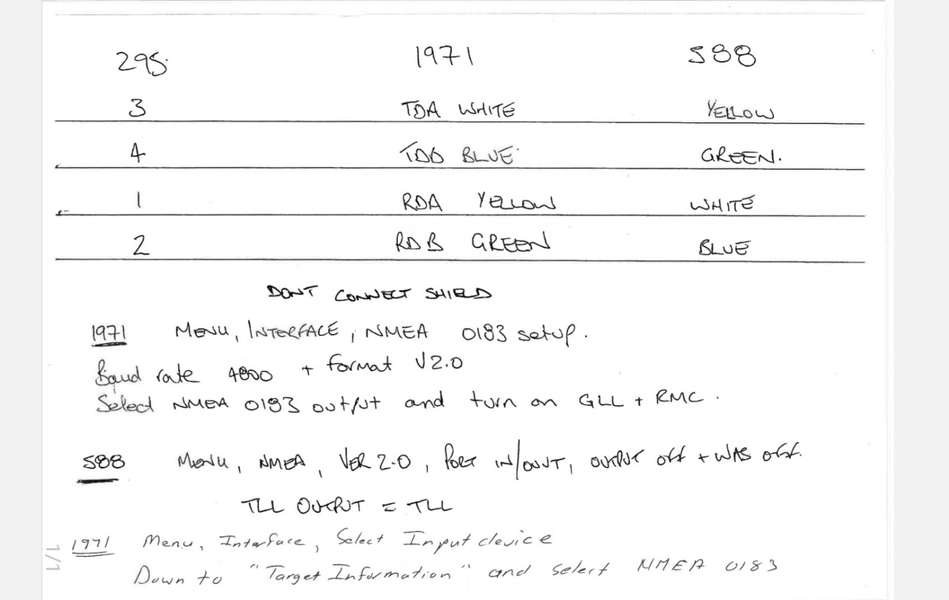 295. 1971 588
3 TDA WHITE YELLOW
4 TDB BLUE GREEN.
1 RDA YELLOW WHITE
2 RDB GREEN BLUE
DONT CONNECT SHIELD
1971 MENU, INTERFACE, NMEA 0183 setup.
Baud rate 4800 + format V2.0
Select NMEA 0183 output and turn on GLL + RMC.
588 MENU, NMEA, VER 2.0, PORT IN/OUT, OUTPUT off + WAS off.
TLL OUTPUT = TLL
1971 Menu, Interface, Select Input device
Down to "Target Information" and select NMEA 0183
1/1